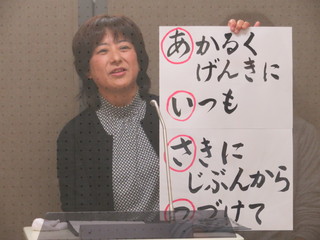 あかるく
げんきに
いつも
さきに
じぶんから
つづけて